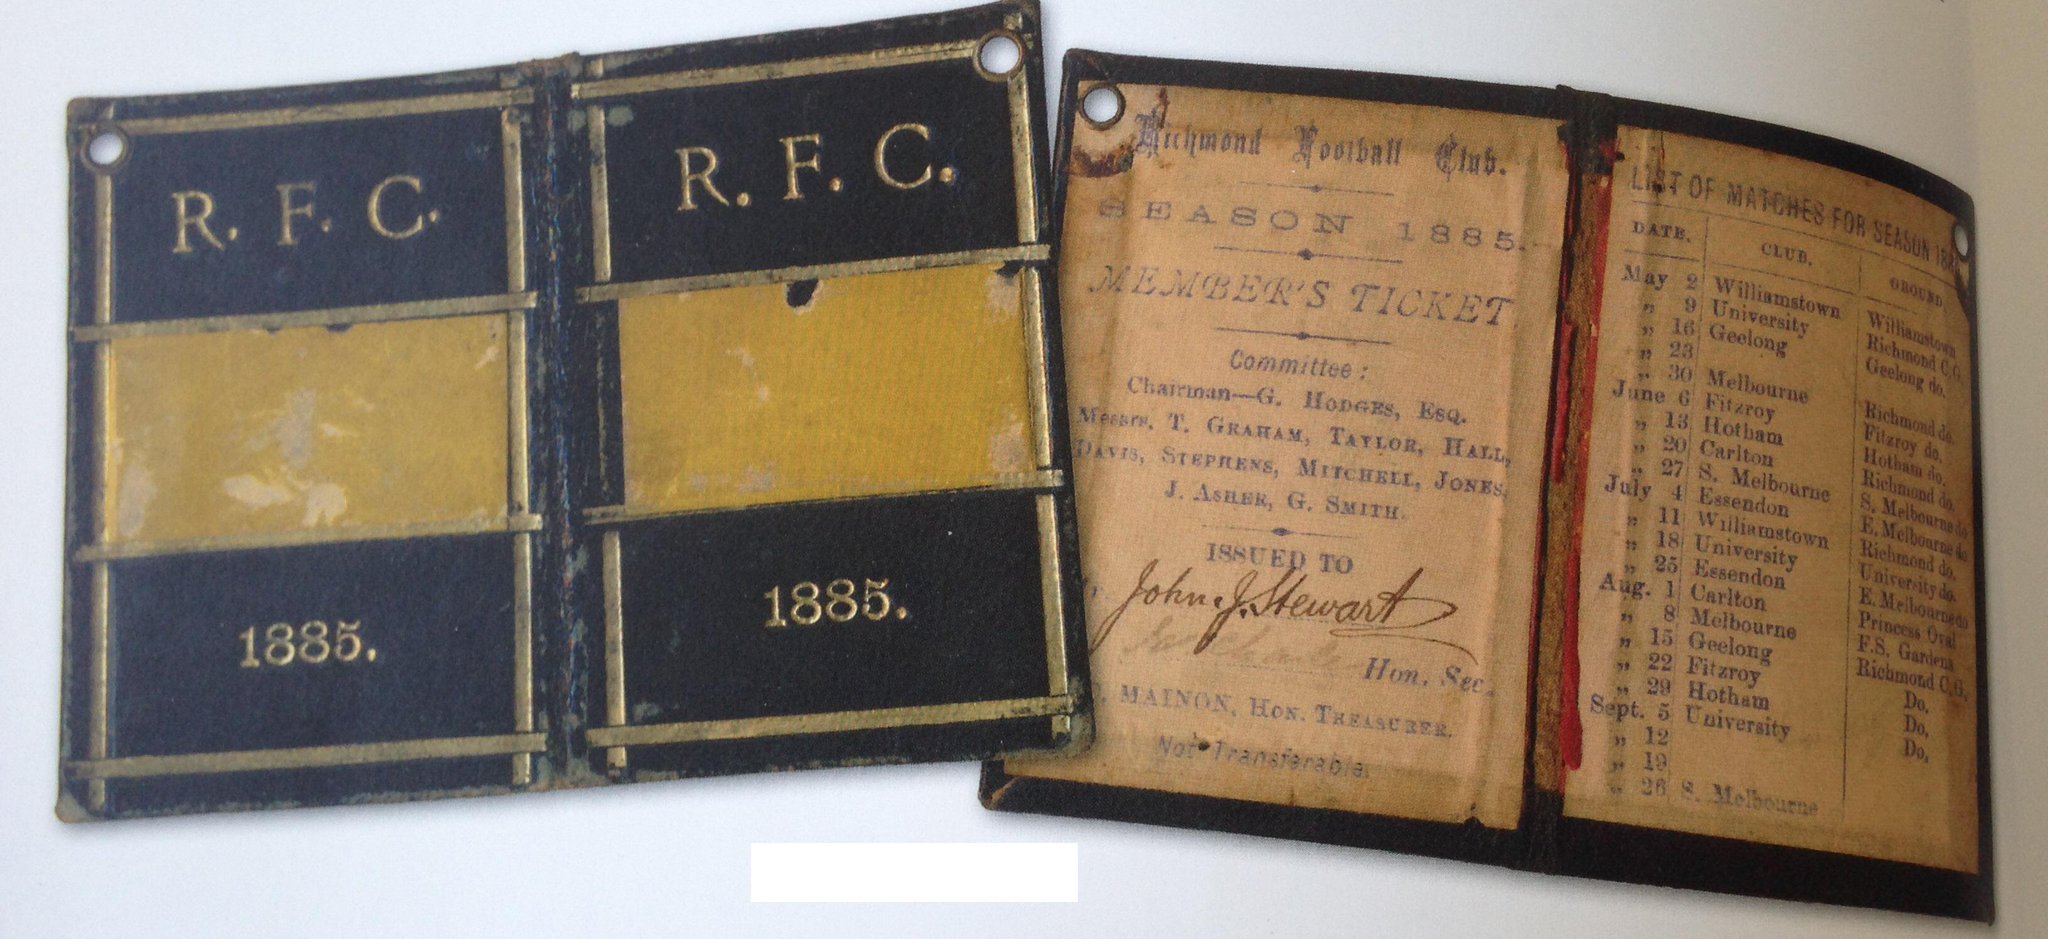 R. F. C.
1885.
R. F. C.
1885.
Richmond Football Club.
SEASON 1885.
MEMBER'S TICKET
Committee:
Chairman—G. HODGES, ESQ.
Messrs. T. GRAHAM, TAYLOR, HALL,
DAVIS, STEPHENS, MITCHELL, JONES,
J. ASHER, G. SMITH.
ISSUED TO
John. J. Stewart
Hon. Sec.
MAINON, HON. TREASURER.
Not Transferable.
LIST OF MATCHES FOR SEASON 188
DATE. CLUB. GROUND.
May 2 Williamstown Williamstown
„ 9 University Richmond C.G.
„ 16 Geelong Geelong do.
„ 23
„ 30 Melbourne Richmond do.
June 6 Fitzroy Fitzroy do.
„ 13 Hotham Hotham do.
„ 20 Carlton Richmond do.
„ 27 S. Melbourne S. Melbourne do
July 4 Essendon E. Melbourne do
„ 11 Williamstown Richmond do.
„ 18 University University do.
„ 25 Essendon E. Melbourne do
Aug. 1 Carlton Princess Oval
„ 8 Melbourne F.S. Gardens
„ 15 Geelong Richmond C.G.
„ 22 Fitzroy Do.
„ 29 Hotham Do.
Sept. 5 University Do.
„ 12
„ 19
„ 26 S. Melbourne